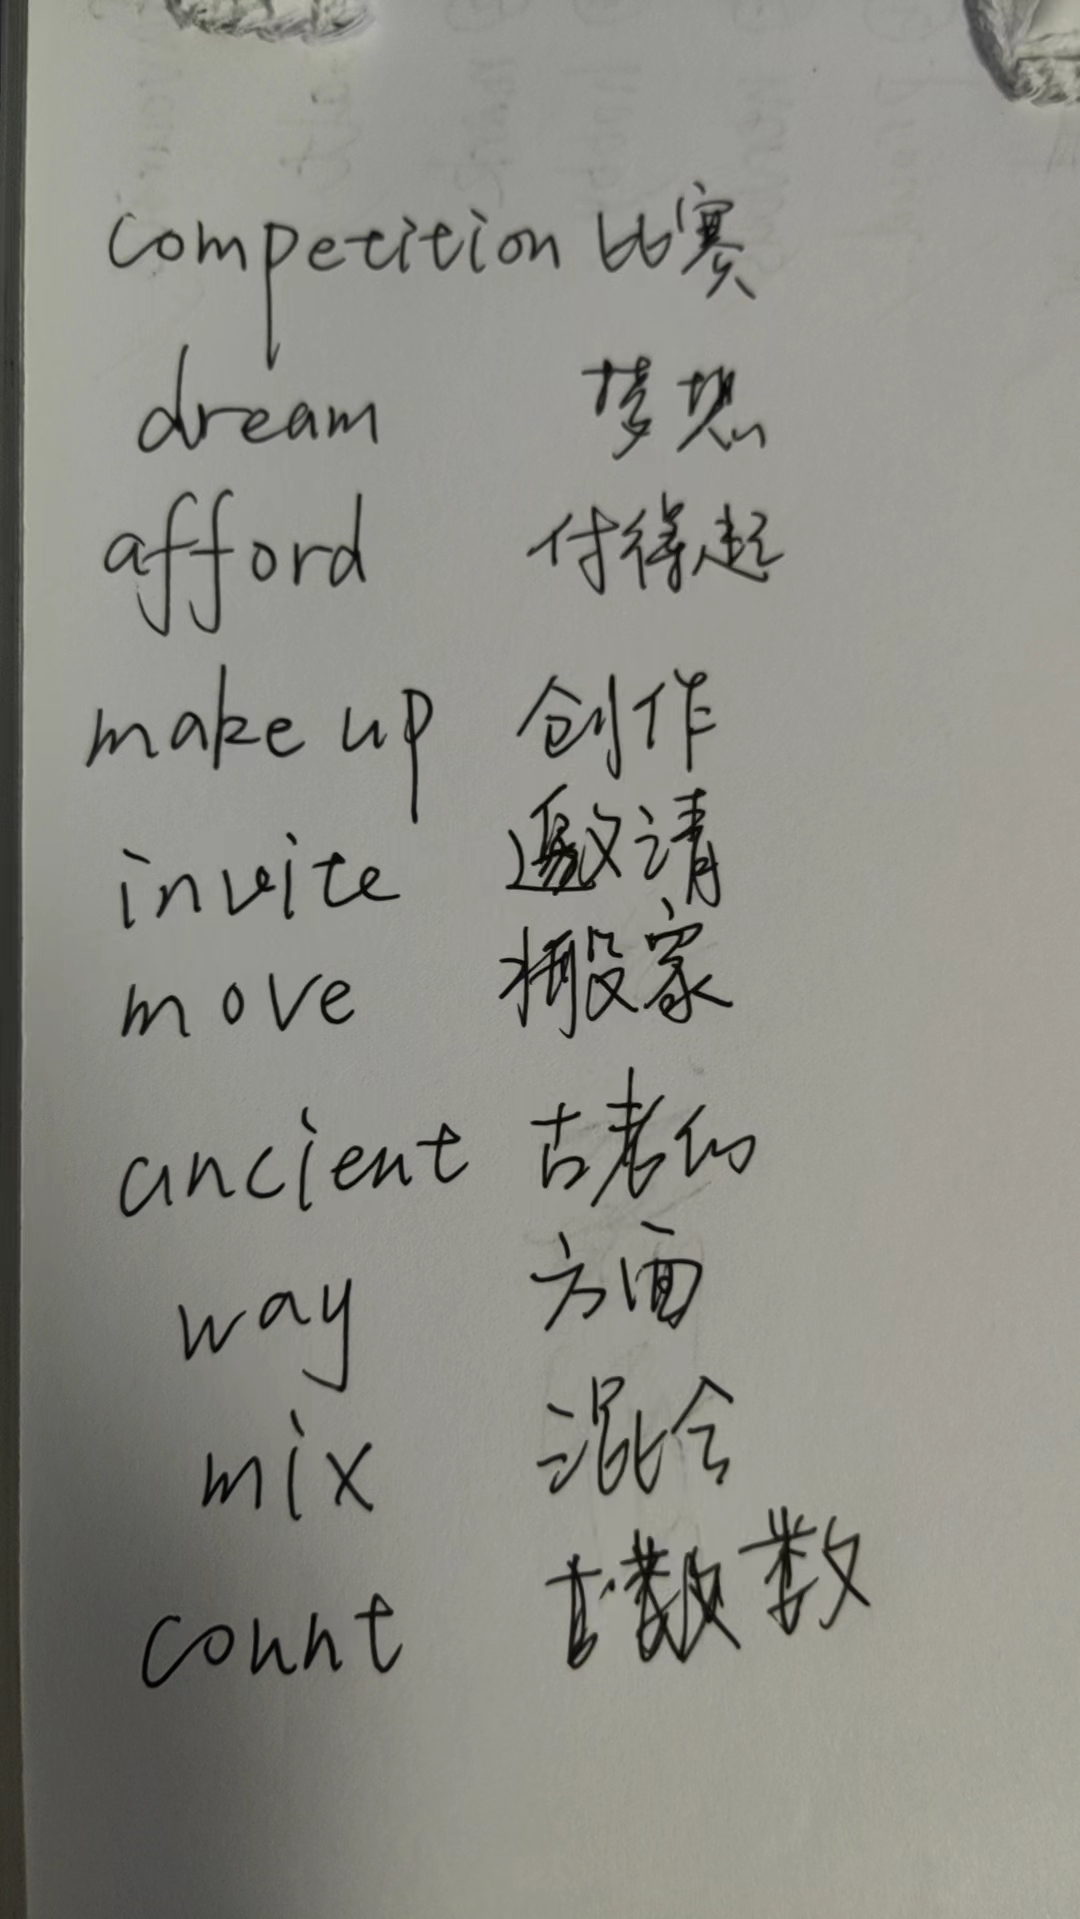 competition 比赛
dream 梦想
afford 付得起
make up 创作
invite 邀请
move 搬家
ancient 古老的
way 方面
mix 混合
count 数